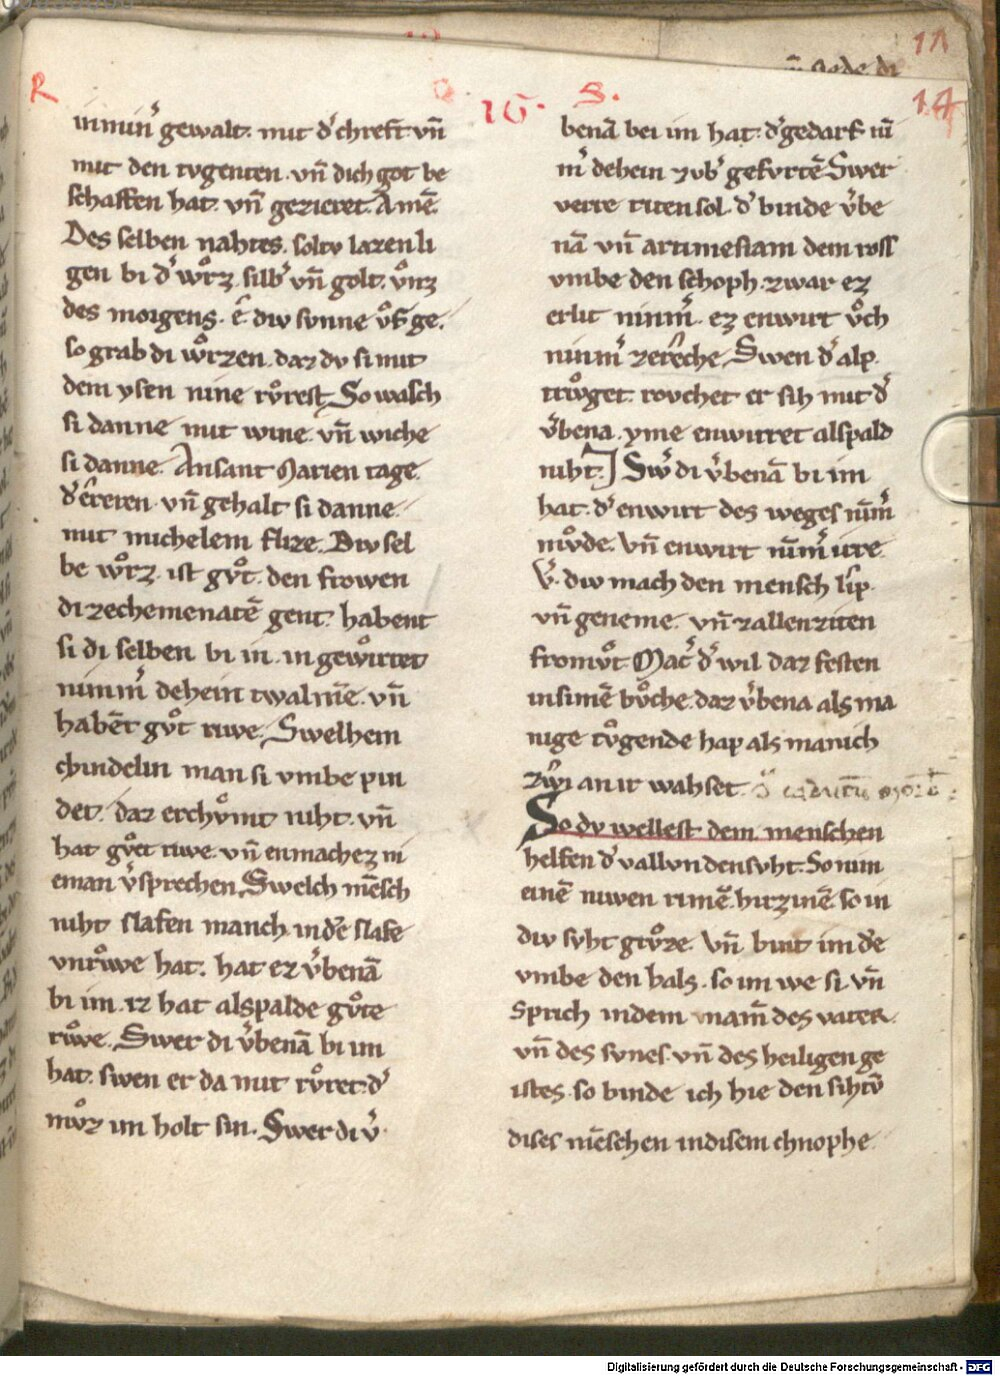 R
16.
S.
11
14
in min gewalt. mit d᾽ chreft vn̄
mit den tvgenten. vn̄ dich got be
schaffen hat. vn̄ gezieret. Amē.
Des selben nahtes. soltv lazen li
gen bi d᾽ wůrz. silb᾽ vn̄ golt. vn̄
des morgens. ê div svnne vf ge.
so grab di wůrzen. daz dv si mit
dem ysen nine růrest. So wasch
si danne mit wine. vn̄ wiche
si danne. An sant Marien tage
d᾽ êreren vn̄ gehalt si danne.
mit michelem flize. Div sel
be wůrz. ist gůt. den frowen
di ze chemenatē gent. habent
si di selben bi in. in gewirret
nimm᾽ dehein twalm̄e. vn̄
habēt gůt rıwe. Swelhem
chindelin man si vmbe pin
det. daz erchůmt niht. vn̄
hat gůt rıwe. vn̄ enmach ez ni
eman v᾽sprechen. Swelch mēsch
niht slafen mach. in d᾽e slafe
vnrůwe hat. hat ez v᾽benā
bi im. iz hat alspalde gůte
růwe. Swer di v᾽benā bi im
hat. swen er da mit růret. d᾽
můz im holt sin. Swer di v᾽
benā bei im hat. d᾽ gedarf nī
m᾽ dehein zvb᾽ gefvrtē Swer
verre riten sol. d᾽ binde v᾽be
nā vn̄ artimesiam dem ross
vmbe den schoph. zwar ez
erlit nimm᾽. ez enwirt ůch
nimm᾽ zereche. Swen d᾽ alp.
trůget. rovchet er sih mit d᾽
v᾽bena. yme enwirret alspald
niht. Sw᾽ di v᾽benā bi im
hat. d᾽ enwirt des weges nīm᾽
můde. vn̄ enwirt nīm᾽ irre.
v᾽. div mach den mensch liep.
vn̄ geneme. vn̄ z allen ziten
fromůt. d᾽ wil daz festen
in sinē bůche. daz v᾽bena als ma
nige tůgende hab als manich
zwi an ir wahset.
So dv wellest dem menschen
helfen d᾽ vallvnden svht. So nim
einē niwen rimē. hirzinē. so in
div svht grůze. vn̄ bint im d᾽e
vmbe den hals. so im we si. vn̄
sprich in dem nam̄ des vater.
vn̄ des svnes. vn̄ des heiligen ge
istes. so binde ich hie den sihtv̄
dises mēschen in disem chnophe
Digitalisierung gefördert durch die Deutsche Forschungsgemeinschaft - DFG